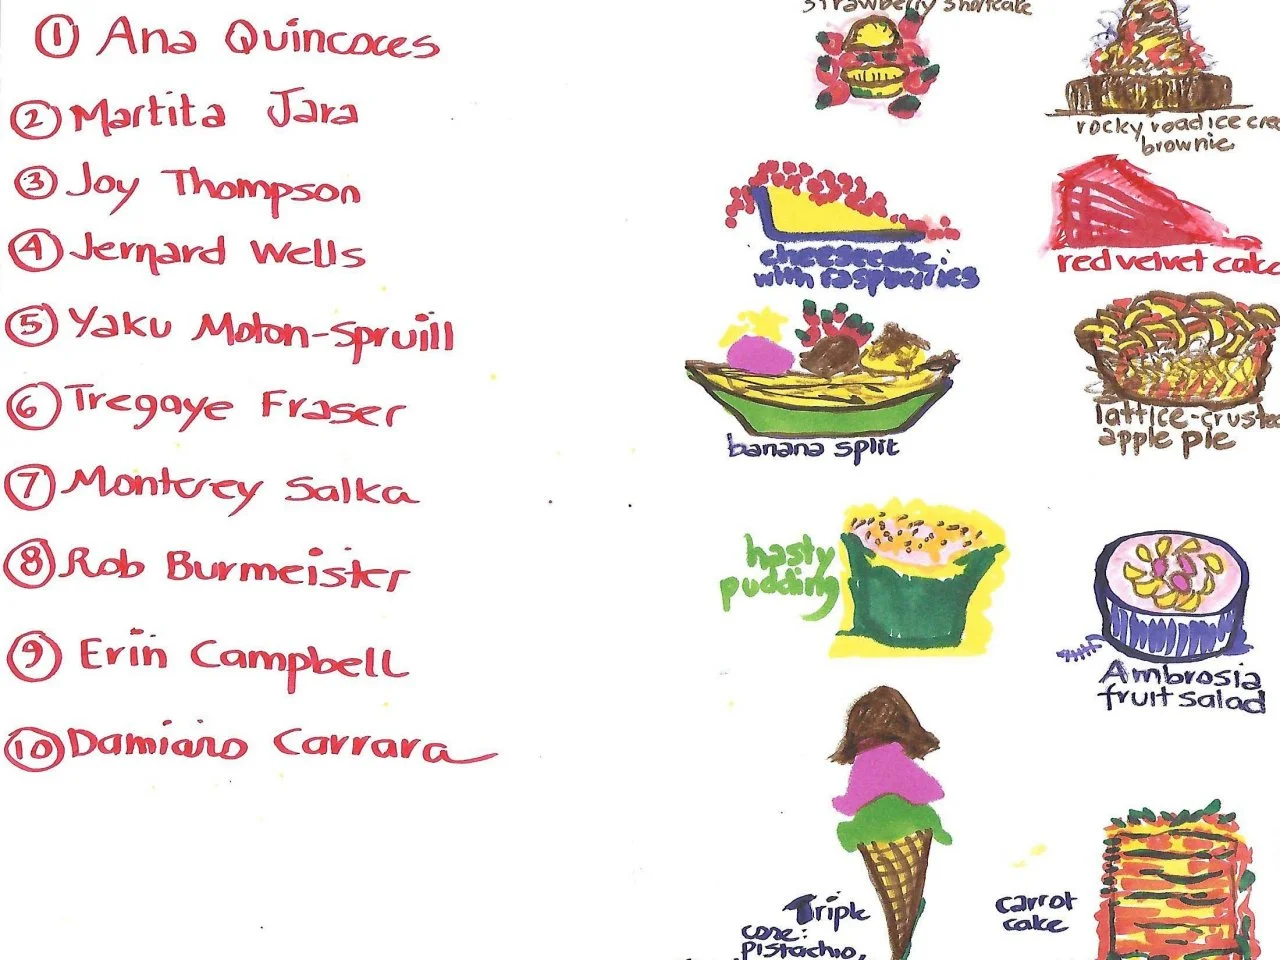 ① Ana Quincoces
② Martita Jara
③ Joy Thompson
④ Jernard Wells
⑤ Yaku Moton-Spruill
⑥ Tregaye Fraser
⑦ Monterey Salka
⑧ Rob Burmeister
⑨ Erin Campbell
⑩ Damiano Carrara
strawberry shortcake
rocky road ice crea
brownie
cheesecake:
with raspberries
red velvet cake
banana split
lattice-cruste
apple pie
hasty
pudding
Ambrosia
fruit salad
Triple
cone:
pistachio,
carrot
cake